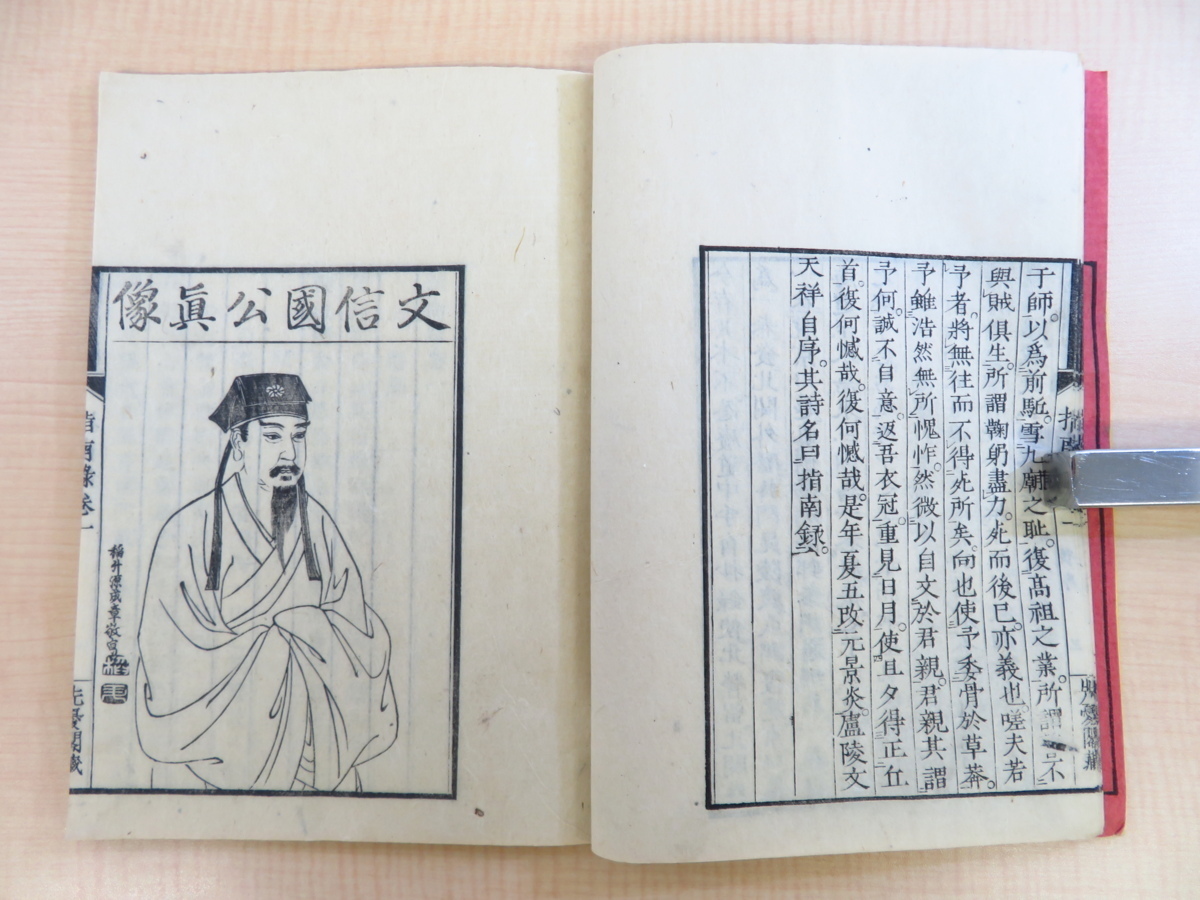 于師。以爲前駈。雪九廟之恥。復高祖之業。所謂
不
與賊俱生。所謂鞠躬盡力。死而後已。亦義也。嗟夫若
予者。將無往而不得死所矣。向也使予委骨於草莽。
予雖浩然無所愧怍。然微以自文於君親。君親其謂
予何。誠不自意。返吾衣冠。重見日月。使旦夕得正丘
首。復何憾哉。復何憾哉。是年夏五。改元景炎。廬陵文
天祥自序。其詩名曰指南錄。
文信國公眞像
指南錄卷一
先憂閣藏